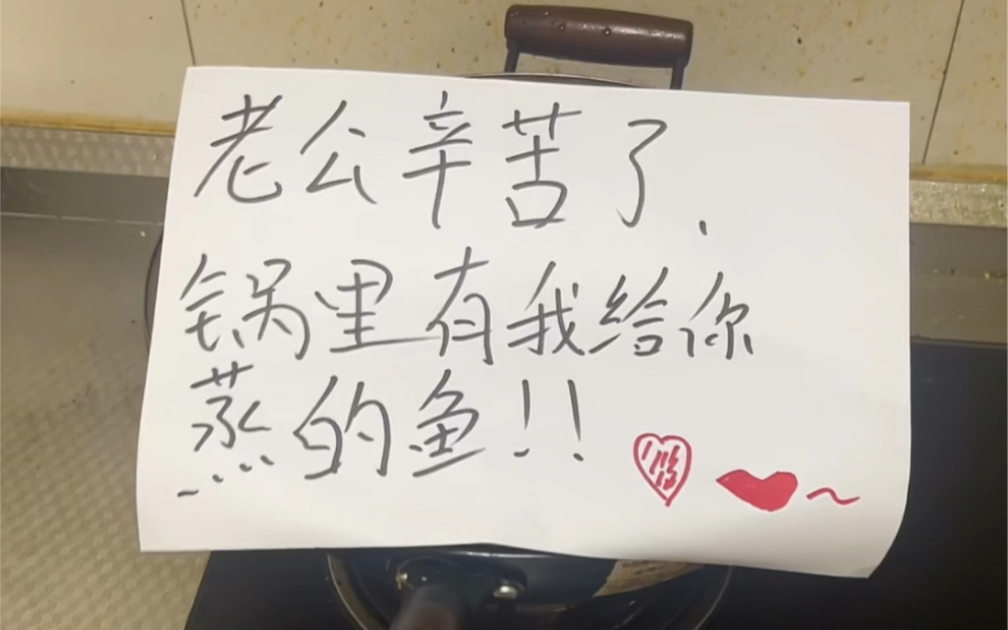 老公辛苦了.
锅里有我给你
蒸的鱼!!